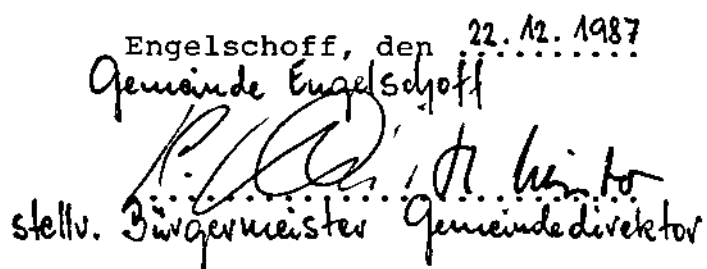 Engelschoff, den 22.12.1987
Gemeinde Engelschoff
stellv. Bürgermeister Gemeindedirektor